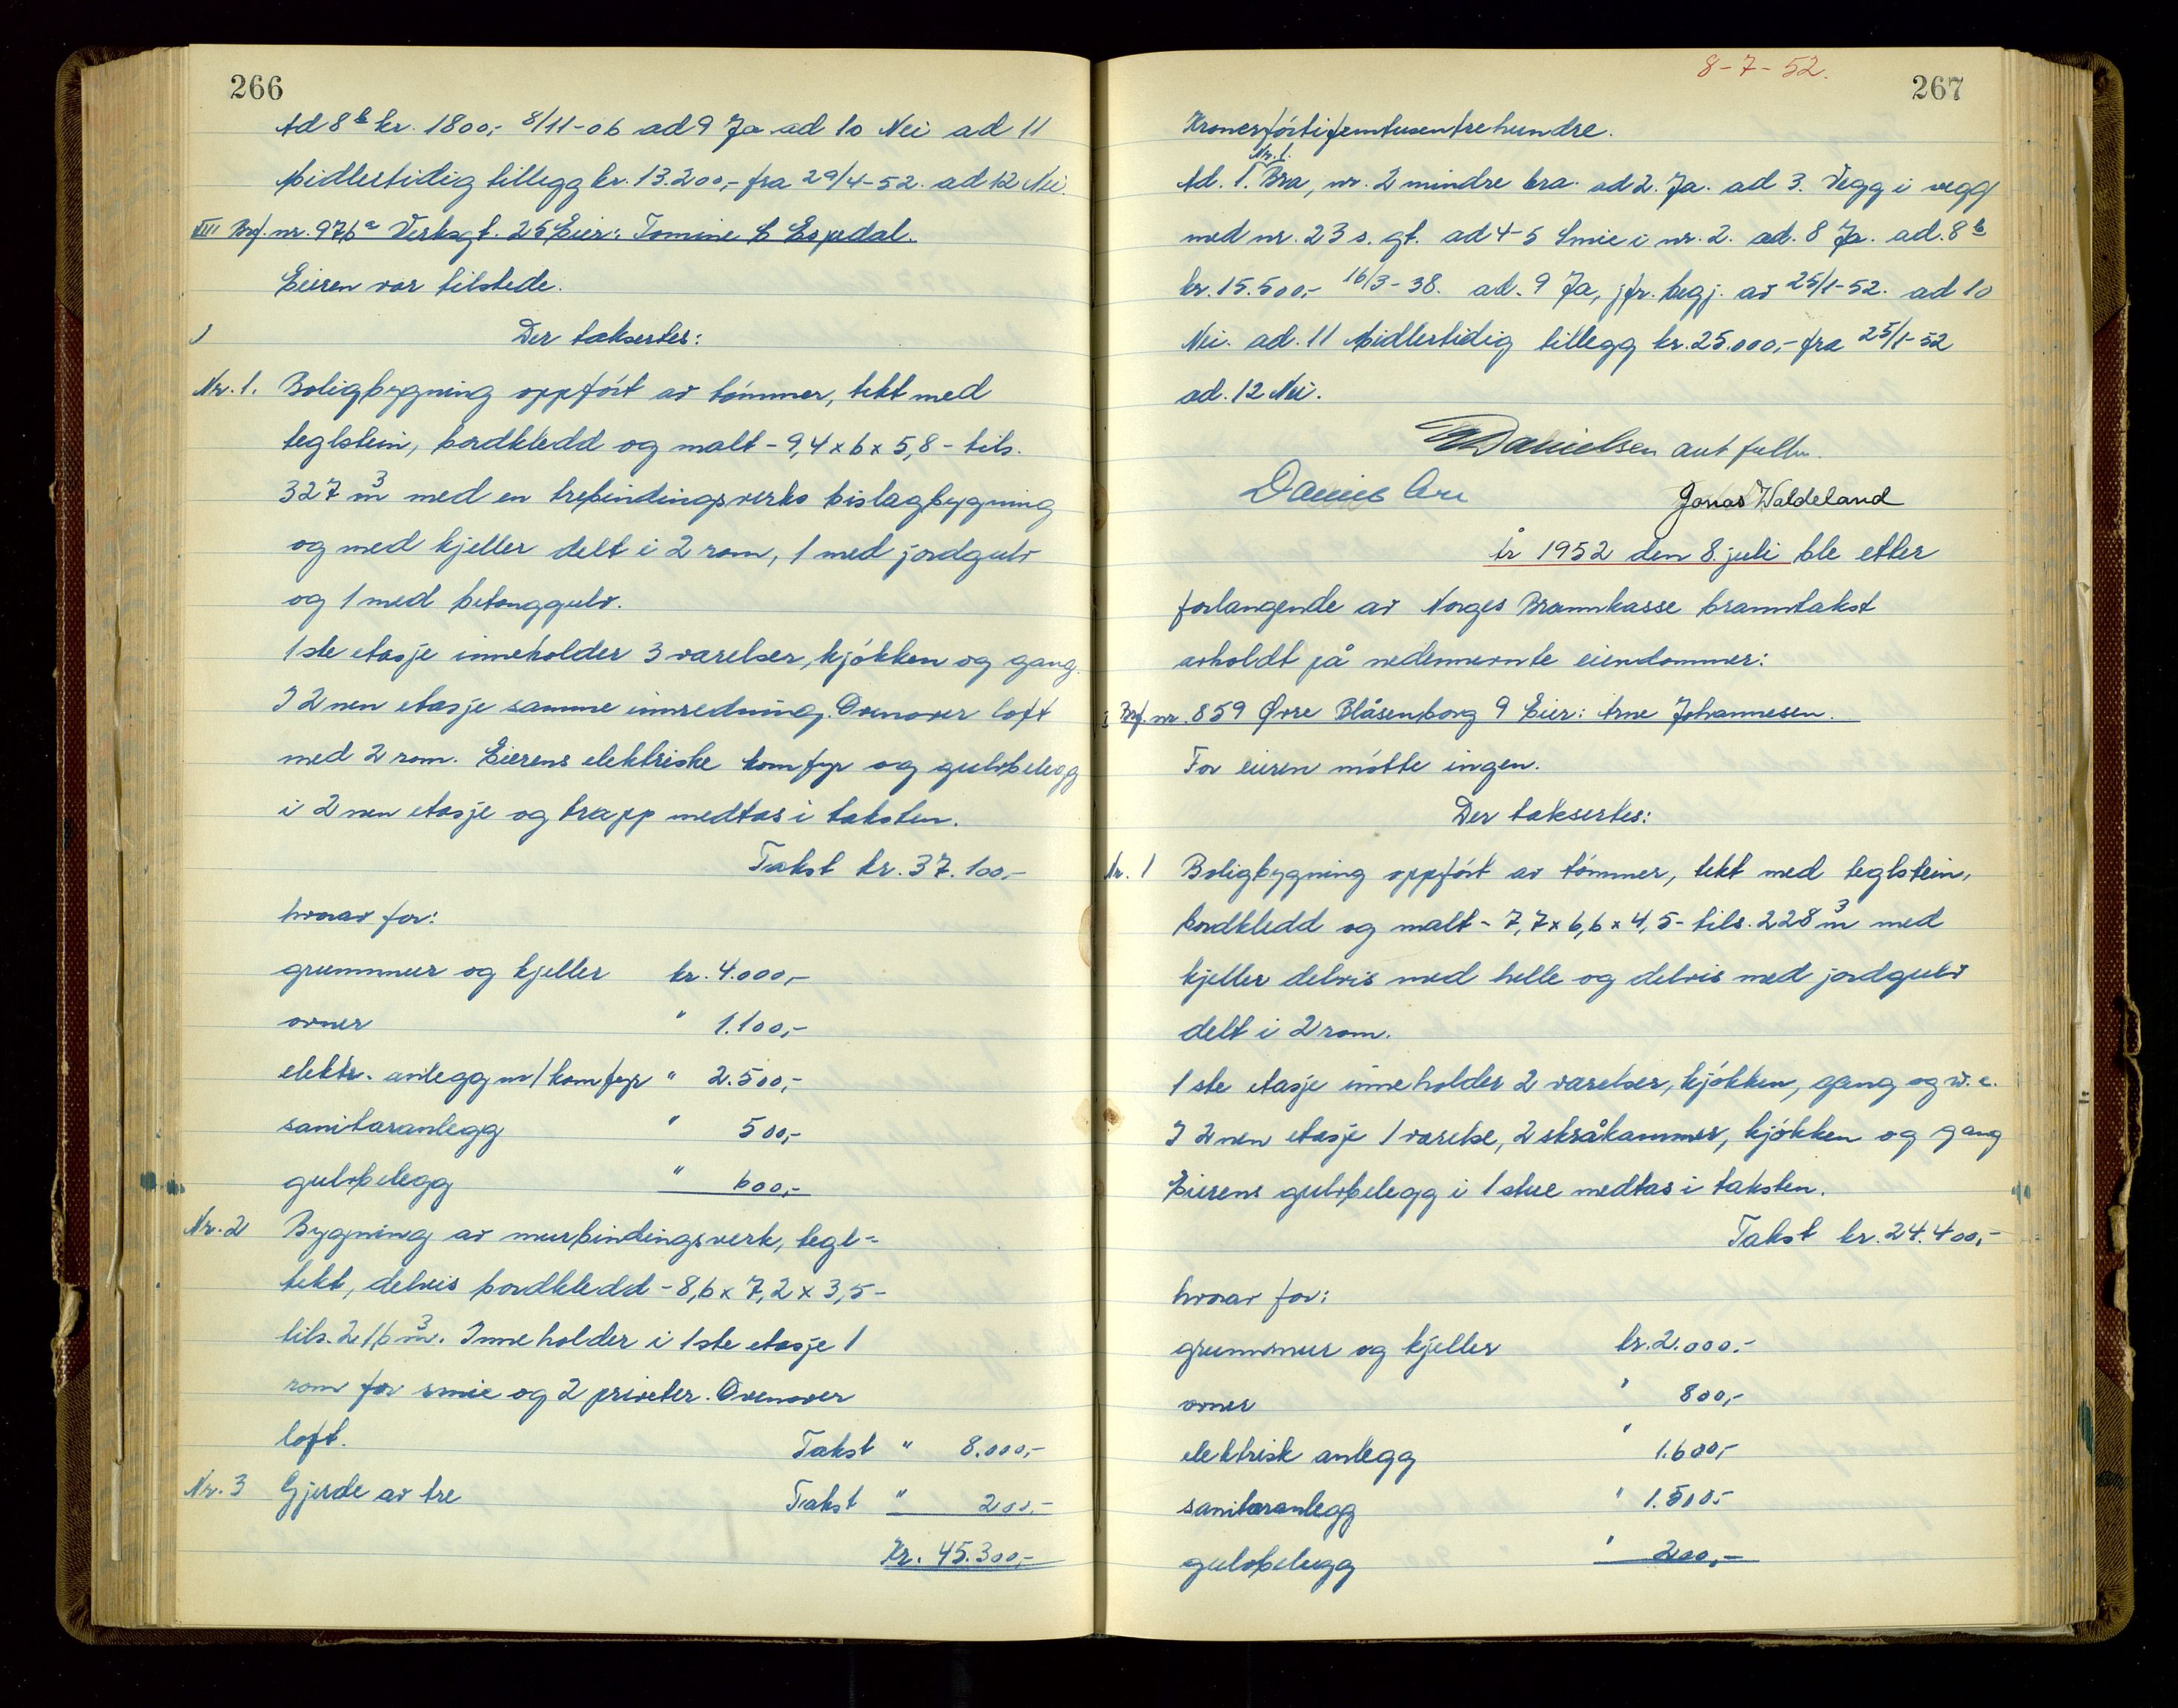 266
Ad 8b kr. 1800,- 8/11-06 ad 9 Ja ad 10 Nei ad 11
Midlertidig tillegg kr. 13.200,- fra 29/4-52. ad 12 Nei.
Brf. nr. 976a Verksgt. 25 Eier: Tomine C Espedal.
Eieren var tilstede.
Der taksertes:
Nr. 1. Boligbygning oppført av tømmer, tekt med
teglstein, bordkledd og malt - 9,4 x 6 x 5,8 - tils.
327 m3 med en trebindingsverks bislagbygning
og med kjeller delt i 2 rom, 1 med jordgulv
og 1 med betonggulv.
1ste etasje inneholder 3 værelser, kjøkken og gang.
I 2nen etasje samme innredning. Ovenover loft
med 2 rom. Eierens elektriske komfyr og gulvbelegg
i 2nen etasje og trapp medtas i taksten.
Takst kr. 37.100,-
hvorav for:
grunnmur og kjeller kr. 4.000,-
ovner " 1.100,-
elektr. anlegg m/komfyr " 2.500,-
sanitæranlegg " 500,-
gulvbelegg " 600,-
Nr. 2 Bygning av murbindingsverk, tegl-
tekt, delvis bordkledd - 8,6 x 7,2 x 3,5 -
tils. 216 m3. Inneholder i 1ste etasje 1
rom for smie og 2 priveter. Ovenover
loft. Takst " 8.000,-
Nr. 3 Gjerde av tre Takst " 200.-
Kr. 45.300,-
8-7-52.
267
Kroner førtifemtusentrehundre.
Nr. 1.
Ad. 1. Bra, nr. 2 mindre bra. ad 2. Ja. ad 3. Vegg i vegg
med nr. 23 s. gt. ad 4-5 Smie i nr. 2. ad. 8 Ja. ad. 8b
kr. 15.500,- 16/3-38. ad. 9 Ja, jfr. begj. av 25/1-52. ad 10
Nei. ad. 11 Midlertidig tillegg kr. 25.000,- fra 25/1-52
ad. 12 Nei.
Danielsen aut fullm.
Jonas Waldeland
År 1952 den 8. juli ble etter
forlangende av Norges Brannkasse branntakst
avholdt på nedennevnte eiendommer:
I Brf. nr. 859 Øvre Blåsenborg 9 Eier: Arne Johannesen.
For eieren møtte ingen.
Der taksertes:
Nr. 1 Boligbygning oppført av tømmer, tekt med teglstein,
bordkledd og malt - 7,7 x 6,6 x 4,5 - tils. 228 m3 med
kjeller delvis med helle og delvis med jordgulv
delt i 2 rom.
1ste etasje inneholder 2 værelser, kjøkken, gang og w.c.
I 2nen etasje 1 værelse, 2 skråkammer, kjøkken og gang
Eierens gulvbelegg i 1 stue medtas i taksten.
Takst kr. 24.400,-
hvorav for:
grunnmur og kjeller kr. 2.000.-
ovner " 800,-
elektrisk anlegg " 1.600,-
sanitæranlegg " 1.500,-
gulvbelegg " 200,-